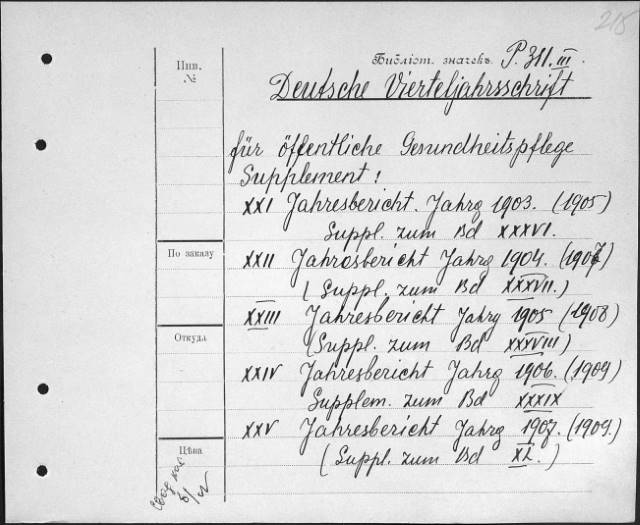 215
Инв.
№
Библіот. значекъ P. 311. III.
Deutsche Vierteljahrsschrift
für öffentliche Gesundheitspflege
Supplement:
XXI Jahresbericht. Jahrg 1903. (1905)
Suppl. zum Bd XXXVI.
По заказу
XXII Jahresbericht Jahrg 1904. (1907)
(Suppl. zum Bd XXXVII.)
XXIII Jahresbericht Jahrg 1905 (1908)
Откуда
(Suppl. zum Bd XXXVIII)
XXIV Jahresbericht Jahrg 1906. (1909)
Supplem. zum Bd XXXIX
XXV Jahresbericht Jahrg 1907. (1909.)
Цѣна
(Suppl. zum Bd XL.)